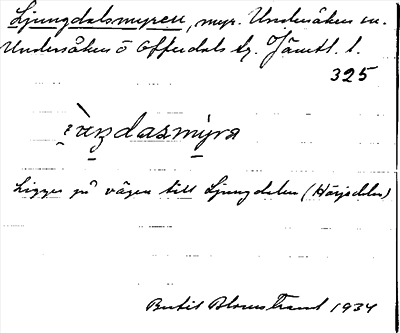 Ljungdalsmyren, myr. Undersåkers sn.
Undersåkers o Offerdals tg. Jämtl. l.
325
Ligger på vägen till Ljungdalen (Härjedalen)
Bertil Blomstrand 1934